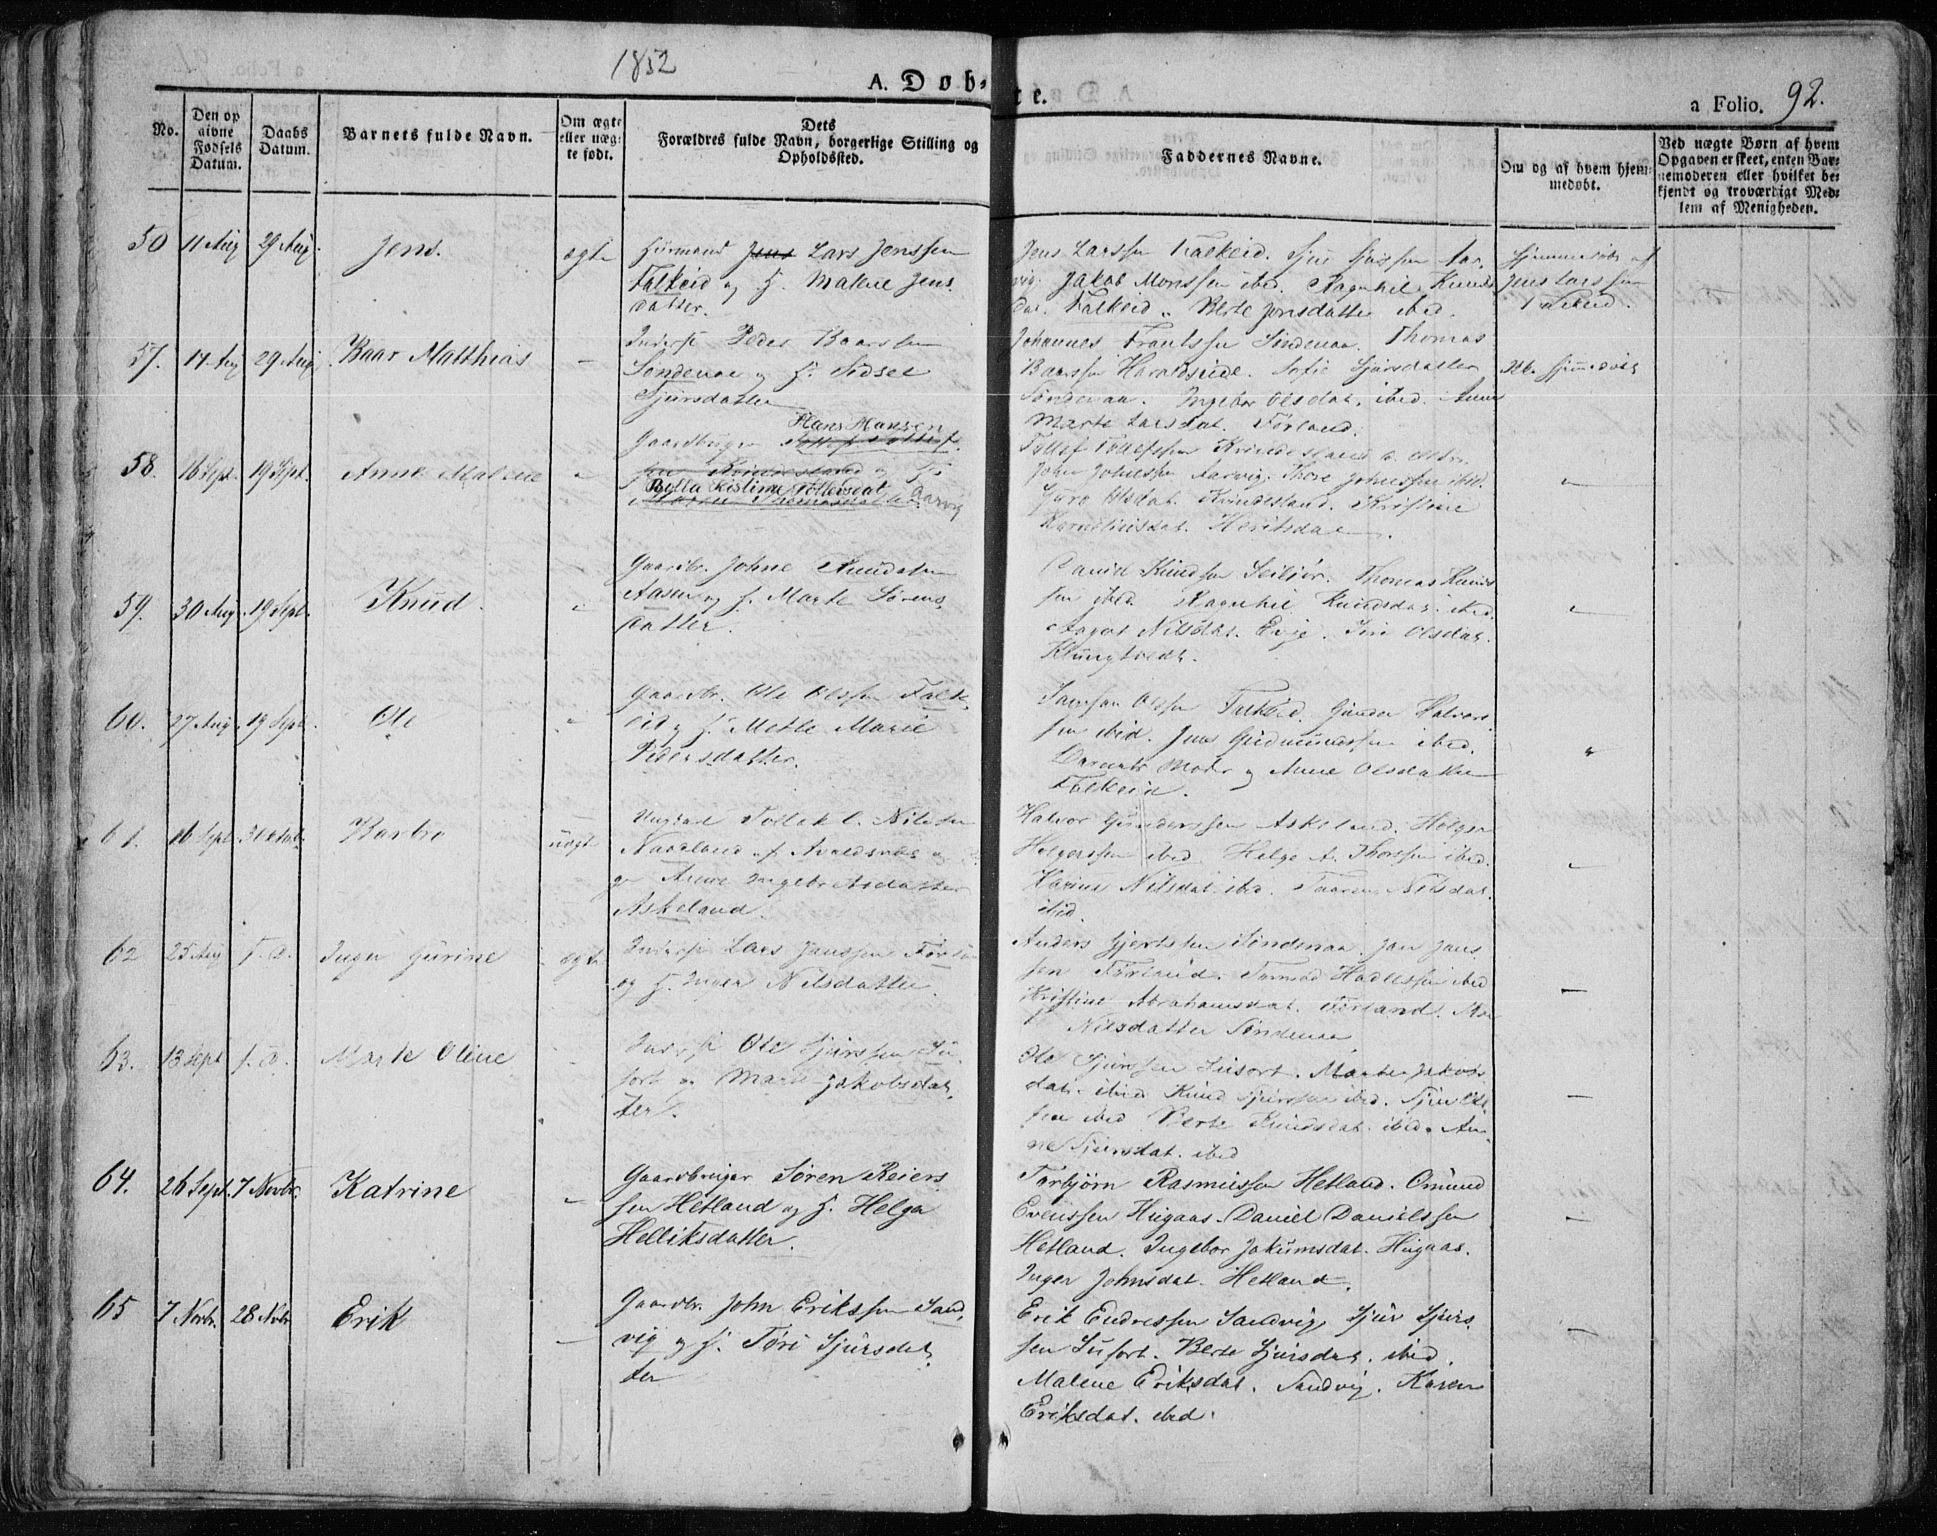 1852
A. Døb-
te.
a Folio. 92.
No.
Den op
givne
Fødsels
Datum.
Daabs
Datum.
Barnets fulde Navn.
Om ægte
eller uæg-
te født.
Dets
Forældres fulde Navn, borgerlige Stilling og
Opholdssted.
Faddernes Navne.
Om og af hvem hjem-
medøbt.
Ved uægte Børn af hvem
Opgaven er skeet, enten Bar-
nemoderen eller hvilket be-
kjendt og troværdigt Med-
lem af Menigheden.
50 11 Aug 29 Aug. Jens. ægte
Huusmand Jens Lars Jenssen
Falkeid og H. Malene Jens
datter.
Jens Larssen Falkeid. Sjur Sjurssen Aar
vig. Jakob Monssen ibid. Ragnhil Knuds
dat. Falkeid. Berte Jonsdatter ibid.
Hjemmedøbt af
Jens Larssen
Falkeid.
57. 14 Aug 29 Aug. Baar Matthias –
Inderst Peder Baarssen
Søndenaa og H. Sidsel
Sjursdatter
Johannes Frantssen Søndenaa. Thomas
Baarssen Haraldseide. Sofie Sjursdatter
Søndenaa. Ingebor Olsdat. ibid. Anne
Marte Larsdat. Førland.
Ikke hjemmedøbt
58. 16 Sept. 19 Sept. Anne Malene
Hans Hansen
Gaardbruger
Kvindesland og H.
Bolla Kistine Tollefsdat Aarvig
Tollef Tollefssen Kvindesland
John Johnssen Aarvig. Thore Johnssen ibid.
Guro Olsdat. Kvindesland. Kristine
Korneliusdat.
59. 30 Aug. 19 Sept. Knud.
Gaardbr. Johne Knudssen
Aasen og H. Marte Sørens
datter.
David Knudssen Leiksør. Thomas Knuds
sen ibid. Ragnhil Knudsdat. ibid.
Aagot Nilsdat. Evje. Siri Olsdat.
Klungtvedt.
60. 27 Aug. 19 Sept. Ole
Gaardbr. Ole Olssen Falk
eid og H. Mette Marie
Pedersdatter.
Samson Olssen Falkeid. Gunder Halvors
sen ibid. Jens Gudmundssen ibid.
Barnets Moder og Anne Olsdatter
Falkeid.
61. 16 Sept. Barbro uægte
Ungkarl Tollak L. Nilssen
Naadland af Avaldsnes og
Pige Anne Ingebretsdatter
Askeland.
Halvor Gunderssen Askeland. Holger
Holgerssen ibid. Helge A. Thorssen ibid.
Karine Nilsdat. ibid. Taaren Nilsdat.
ibid.
62 25 Aug f. d. Inger Gurine ægte
Inderst Lars Janssen Førland
og H. Inger Nilsdatter.
Anders Gjertssen Søndenaa. Jan Jans
sen Førland. Tormod Hadlessen ibid
Kristine Abrahamsdat. Førland.
Nilsdatter Søndenaa
63. 13 Sept f. d. Marte Oline
Inderst Ole Sjurssen Su
fort og Marte Jakobsdat
ter.
Ole Sjurssen Sufort. Marte Jakobs
dat. ibid Knud Sjurssen ibid. Sjur Ols
sen ibid Berte Knudsdat. ibid. An
ne Sjursdat. ibid
64. 26 Sept. 7 Novbr. Katrine –
Gaardbruger Søren Reiers
sen Hetland og H. Helga
Helliksdatter.
Torbjørn Rasmussen Hetland. Omund
Evenssen Hugaas. Daniel Danielssen
Hetland. Ingebor Jokumsdat. Hugaas.
Inger Johnsdat. Hetland.
65 7 Novbr. 28 Novbr Erik –
Gaardbr. John Erikssen Sand
vig og H. Tøri Sjursdat
ter
Erik Endressen Sandvig. Sjur Sjurs
sen Sufort. Berte Sjursdat. ibid.
Malene Eriksdat. Sandvig. Karen
Eriksdat. ibid.